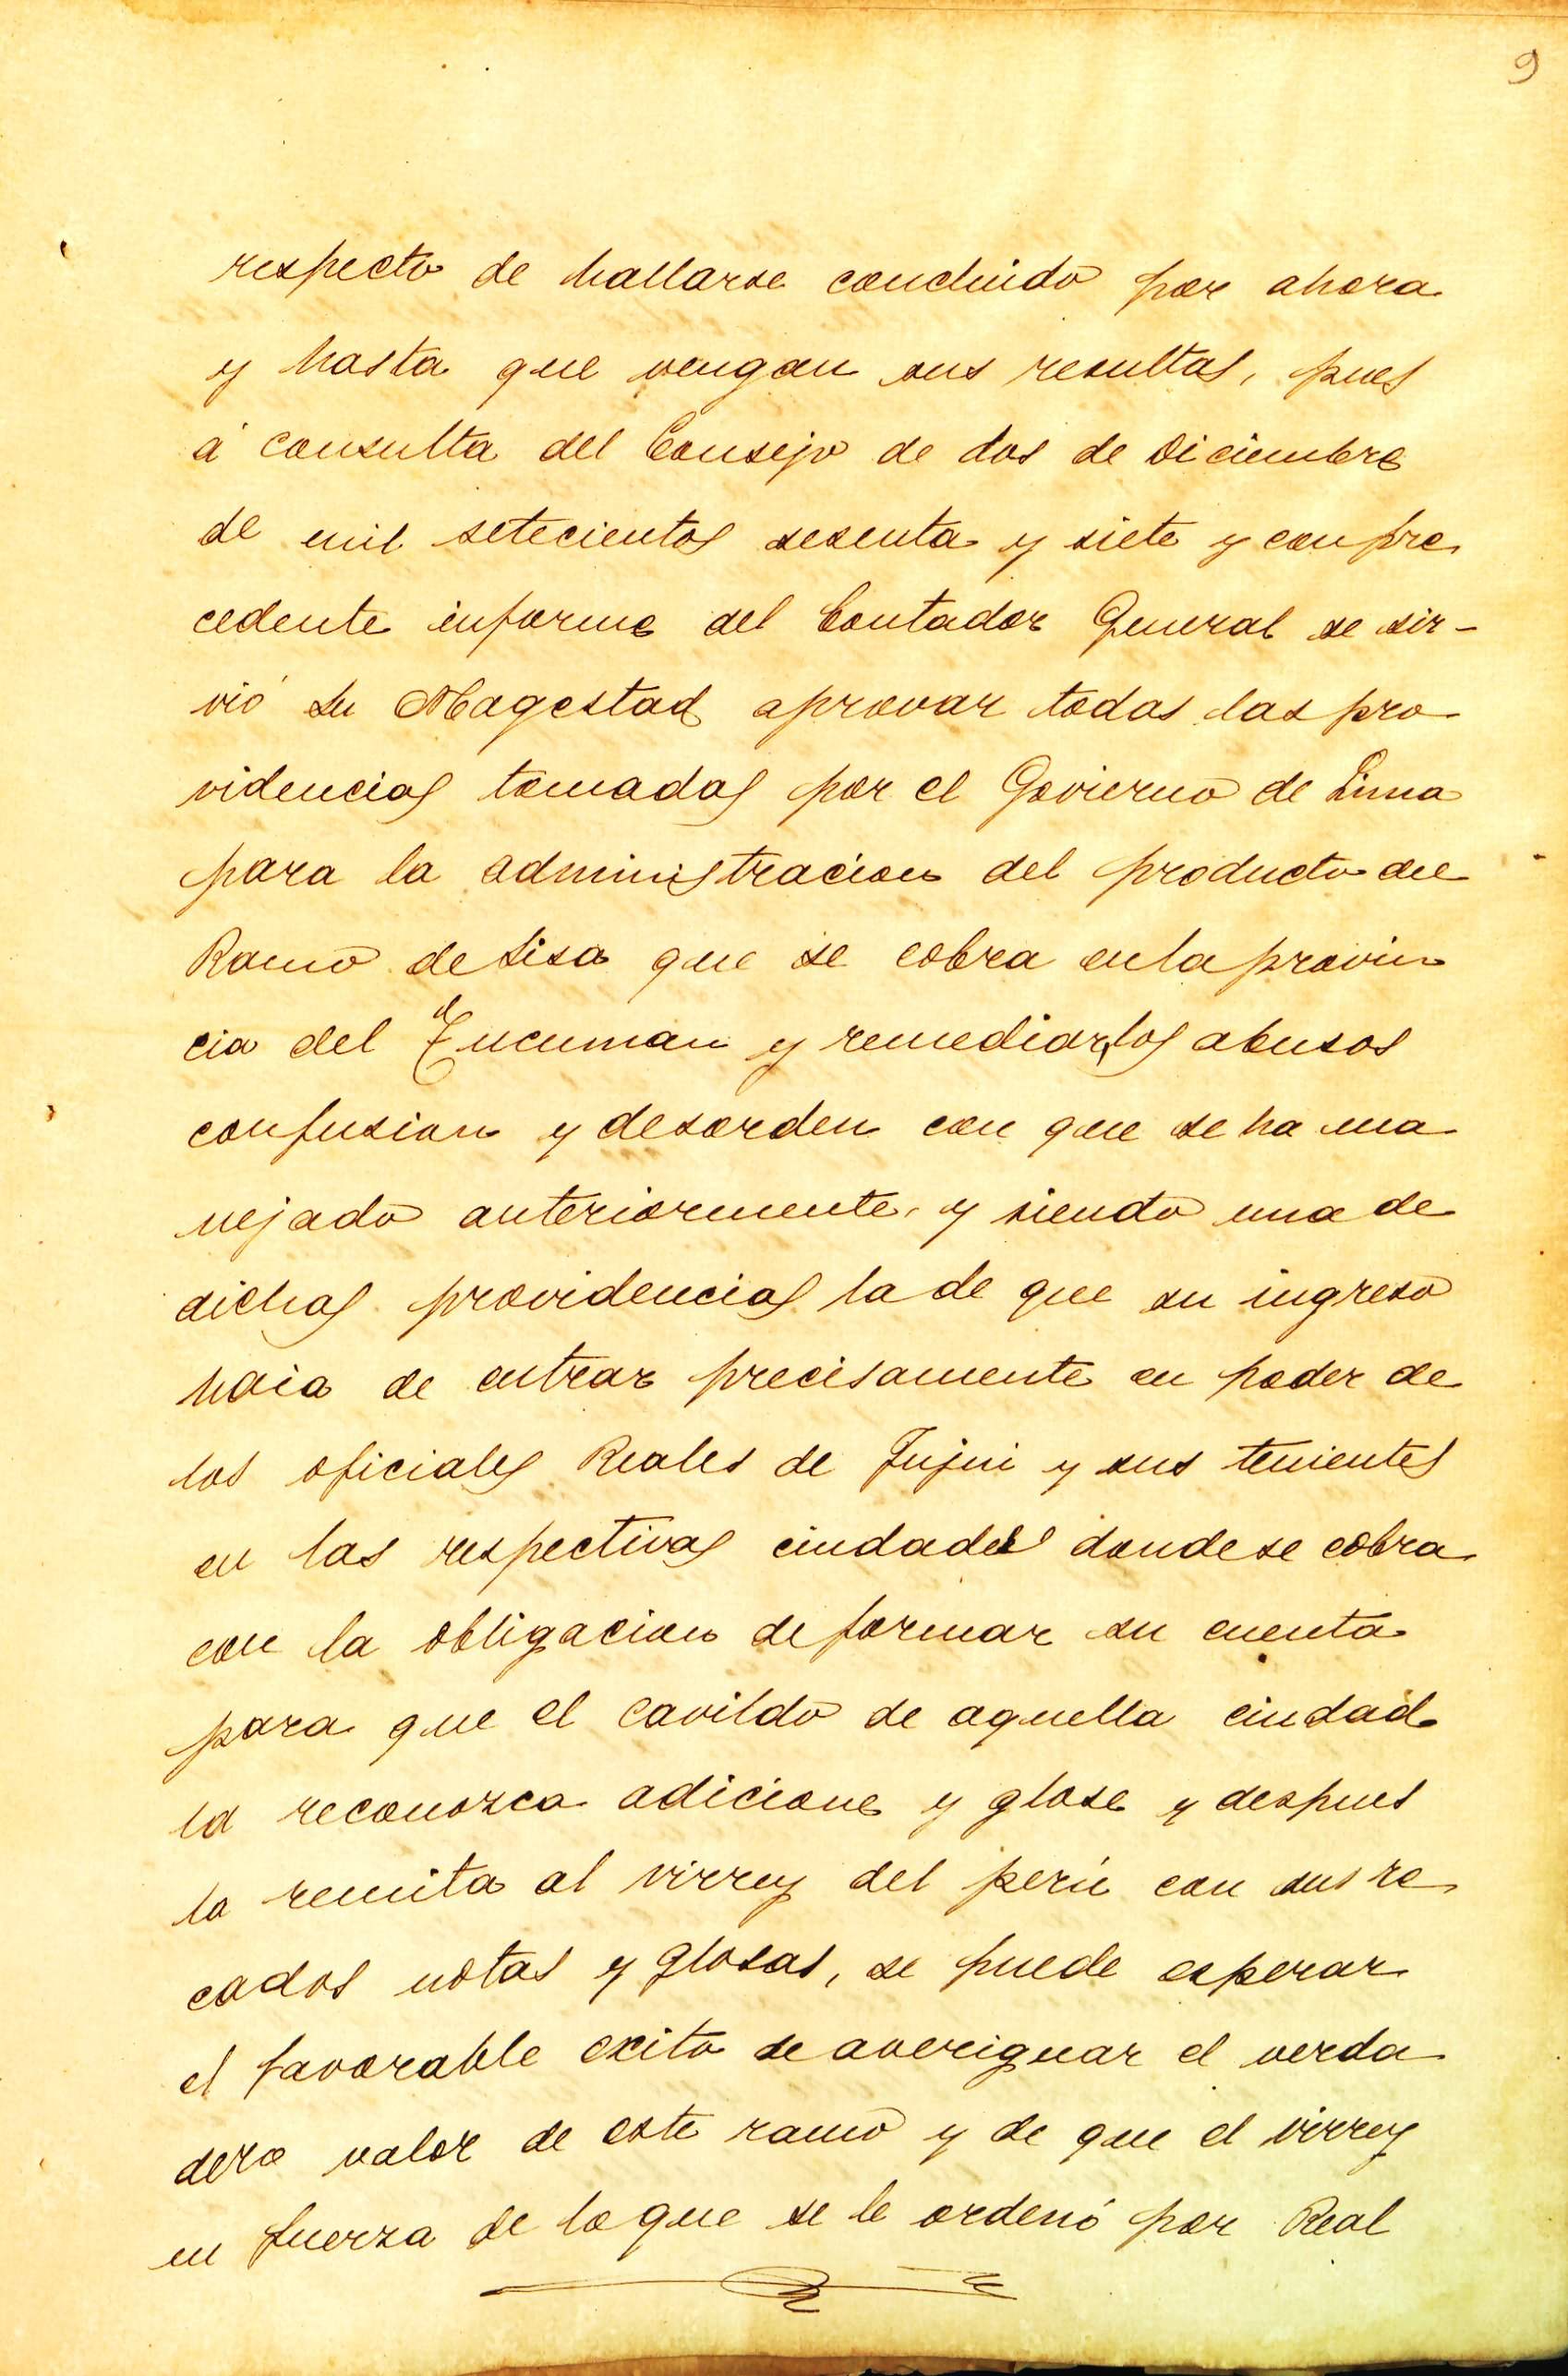 9
respecto de hallarse concluido por ahora
y hasta que vengan sus resultas, pues
á consulta del Consejo de dos de Diciembre
de mil setecientos sesenta y siete y con pre
cedente informe del Contador General se sir-
vió Su Magestad aprovar todas las pro
videncias tomadas por el Govierno de Lima
para la administracion del producto del
Ramo de Sisa que se cobra en la provin
cia del Tucuman y remediar los abusos
confusion y desorden con que se ha ma
nejado anteriormente, y siendo una de
dichas providencias la de que su ingreso
haia de entrar precisamente en poder de
los oficiales Reales de Jujui y sus tenientes
en las respectivas ciudades donde se cobra
con la obligacion de formar su cuenta
para que el Cavildo de aquella ciudad
la reconozca adicione y glose y despues
la remita al virrey del perú con sus re
cados notas y glosas, se puede esperar
el favorable exito de averiguar el verda
dero valor de este ramo y de que el virrey
en fuerza de lo que se le ordenó por Real